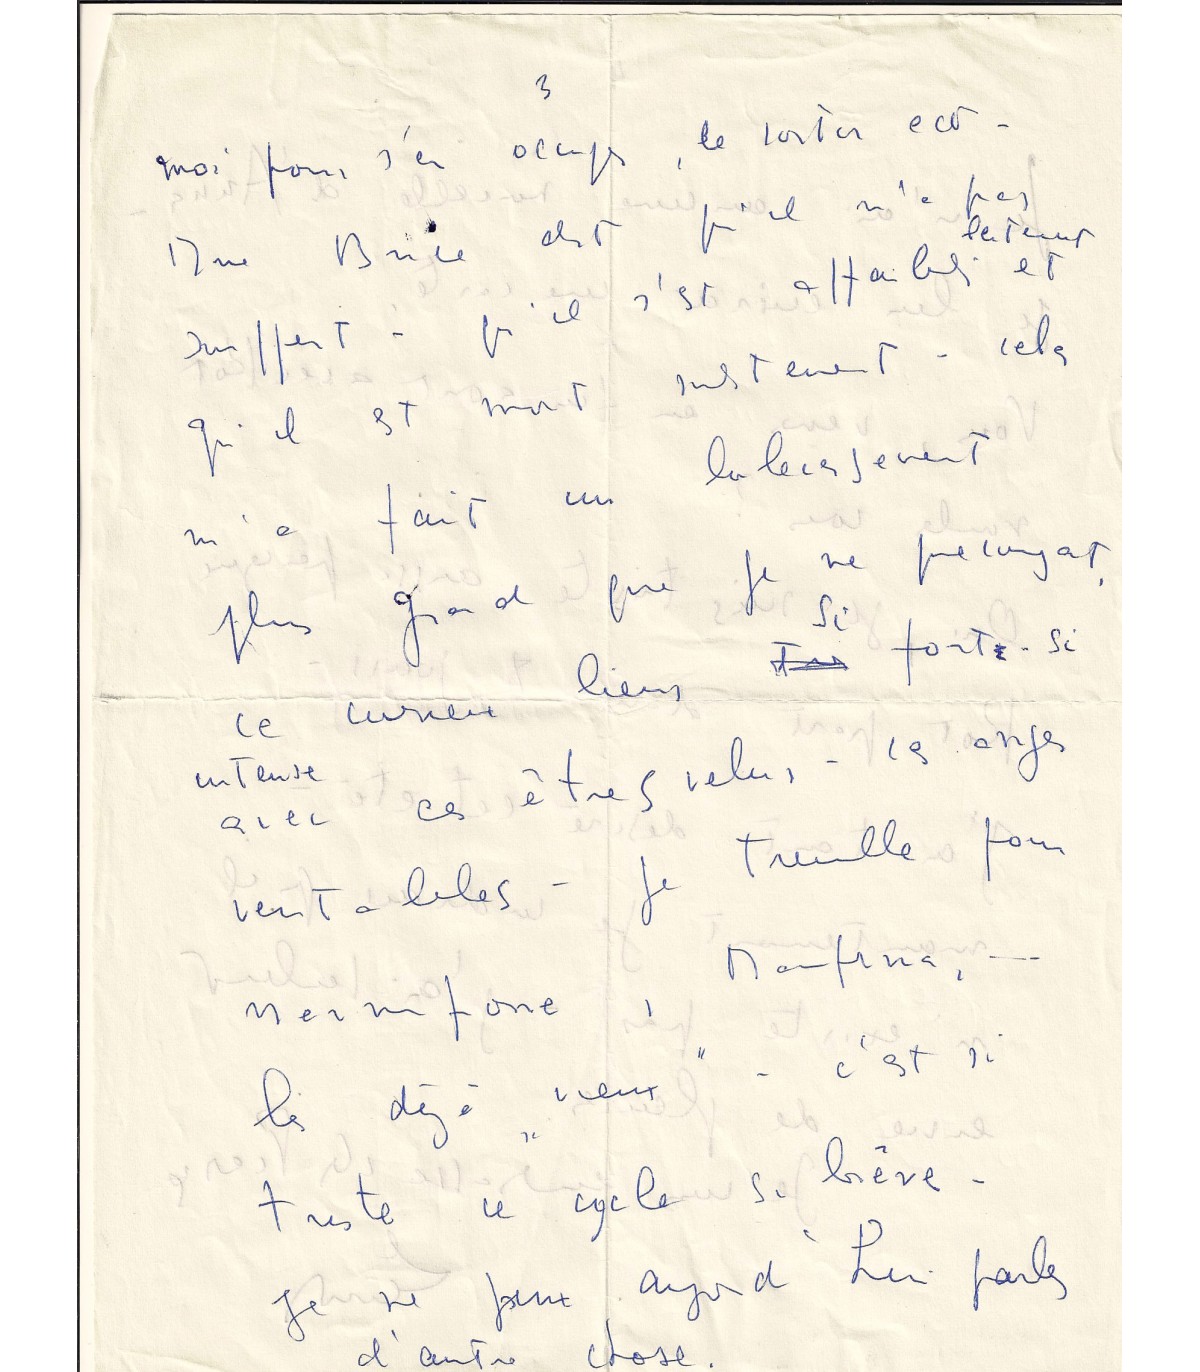 3
moi pour s'en occuper, le sortir ect -
Mme Brice dit qu'il n'a pas
souffert - qu'il s'est affaibli et
lentement
qu'il est mort justement - cela
m'a fait un bouleversement
plus grand que je ne pensais,
ce curieux liens si forte. si
intense
avec ces êtres velus - ces anges
veritables - je tremble pour
Manfrina, ---
les déjà "vieux" - c'est si
triste ce cycle si brêve -
je ne peux aujord'hui parler
d'autre chose.